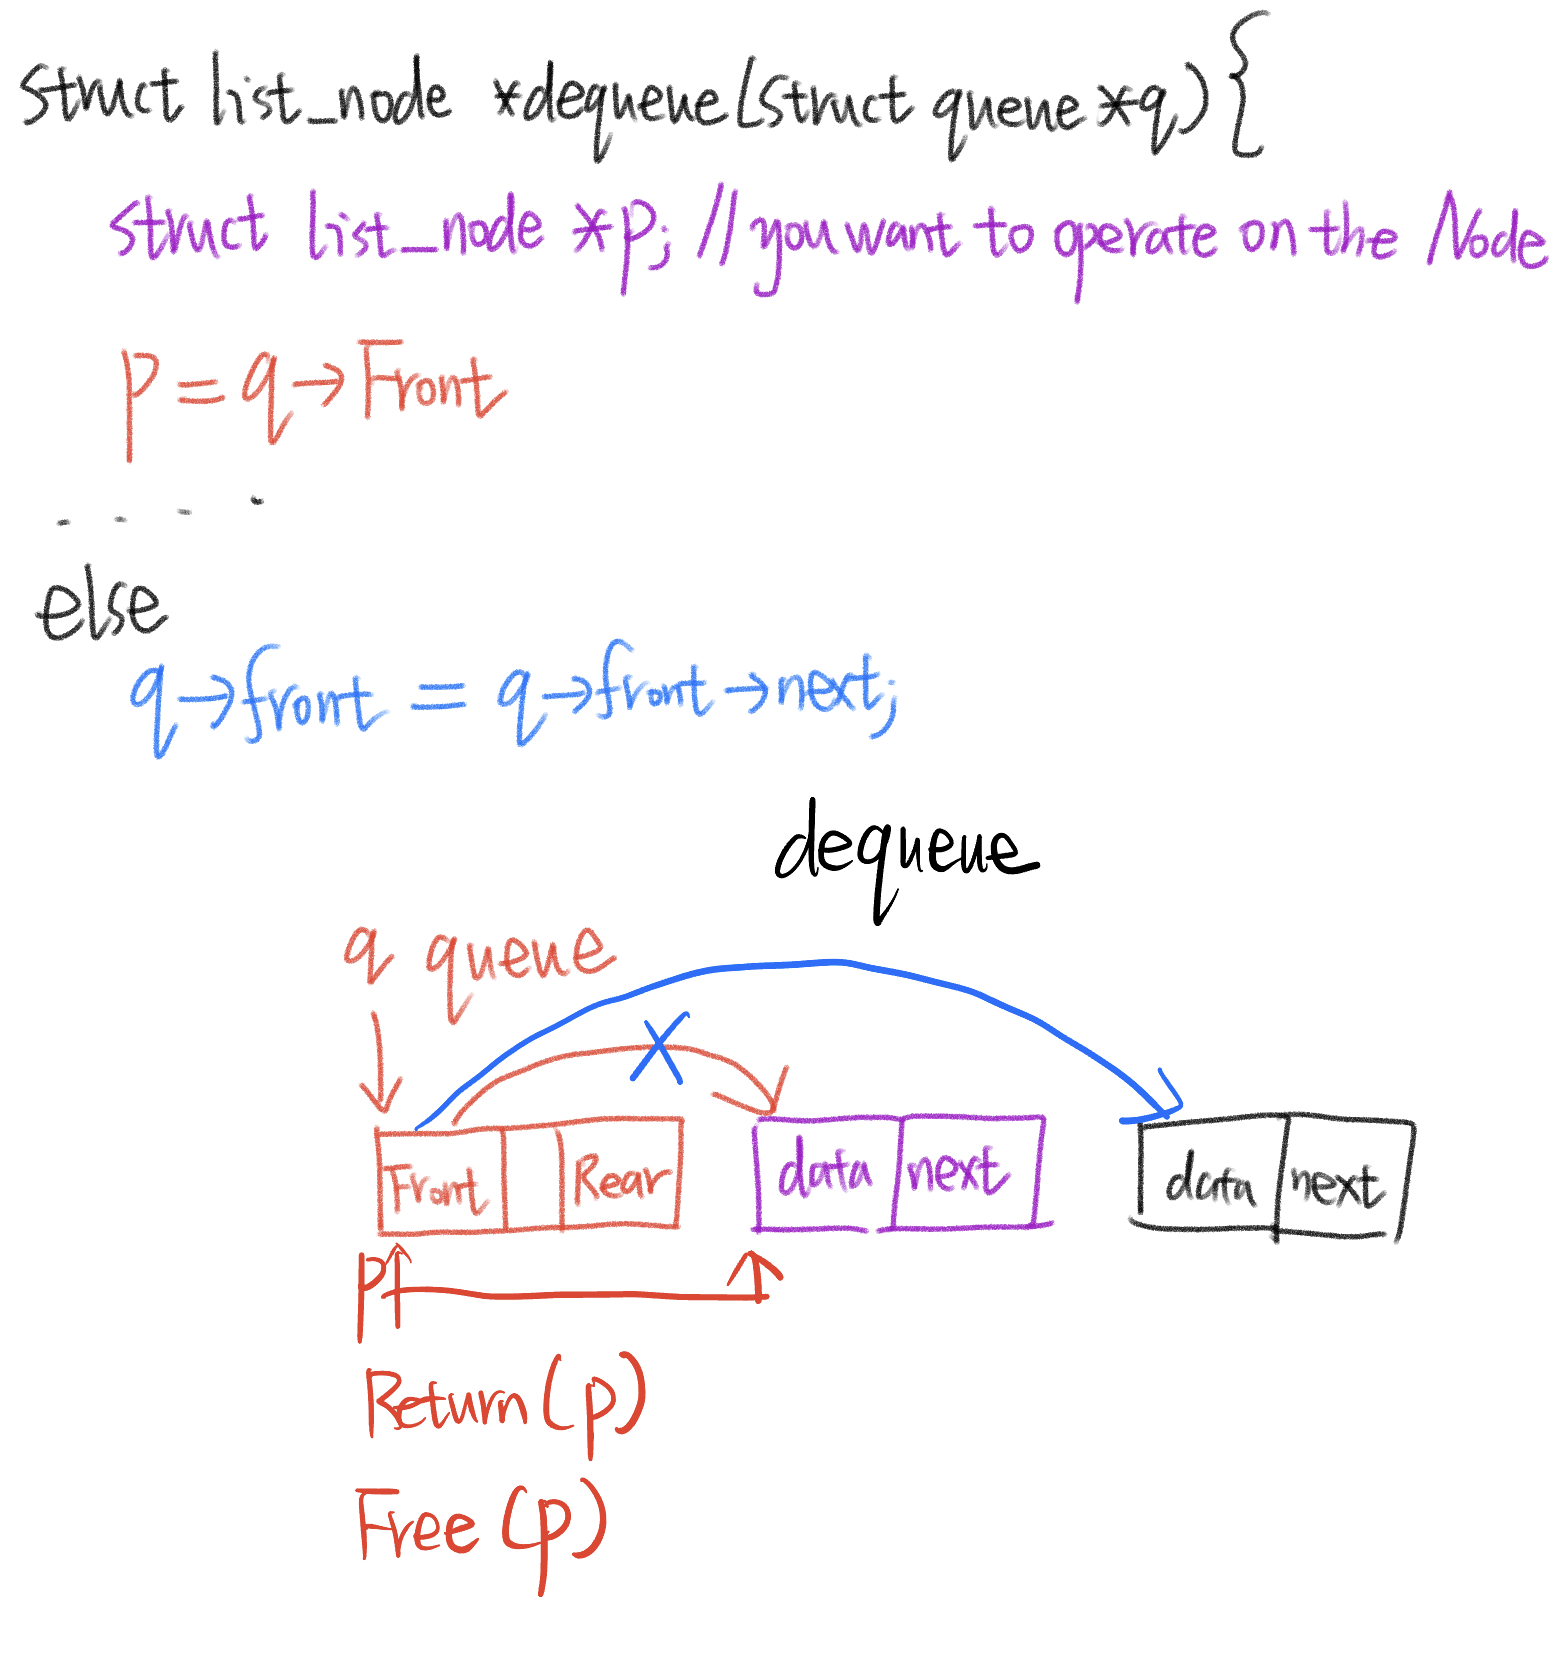 struct list_node *dequeue(struct queue *q){
struct list_node *p; //you want to operate on the Node
p = q→Front
. . . .
else
q→front = q→front→next;
dequeue
q queue
Front Rear data next data next
p
Return(p)
Free(p)